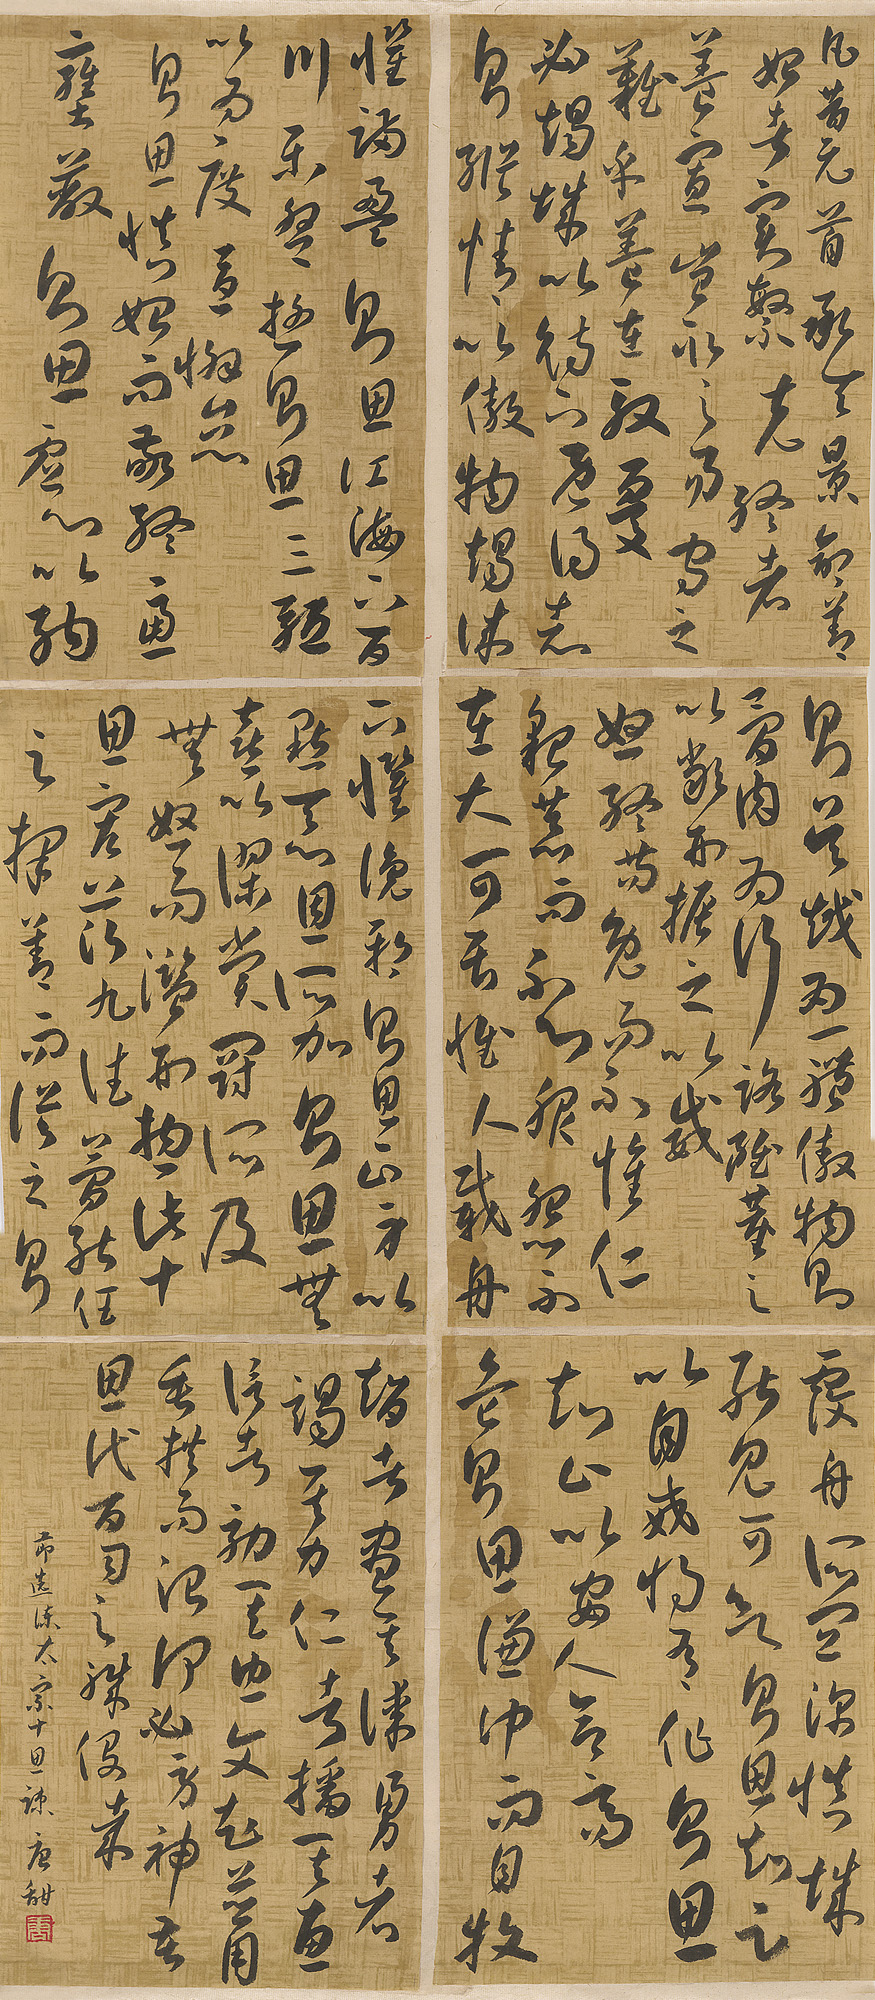 凡昔元首承天景命善
始者實繁克終者
蓋寡豈取之易守之
難乎蓋在殷憂
必竭誠以待下既得志
則縱情以傲物竭誠
則吳越為一體傲物則
骨肉為行路雖董之
以嚴刑振之以威
怒終苟免而不懷仁
貌恭而不心服怨不
在大可畏惟人載舟
覆舟所宜深慎誠
能見可欲則思知足
以自戒將有作則思
知止以安人念高
危則思謙沖而自牧
懼滿盈則思江海下百
川樂盤遊則思三驅
以為度憂懈怠
則思慎始而敬終慮
壅蔽則思虛心以納
下懼讒邪則思正身以
黜惡恩所加則思無
喜以謬賞罰所及
無怒而濫刑總此十
思宏茲九德簡能任
之擇善而從之則
智者盡其謀勇者
竭其力仁者播其惠
信者效其忠文武並用
垂拱而治何必勞神苦
思代百司之職役哉
節選諫太宗十思疏 唐甜